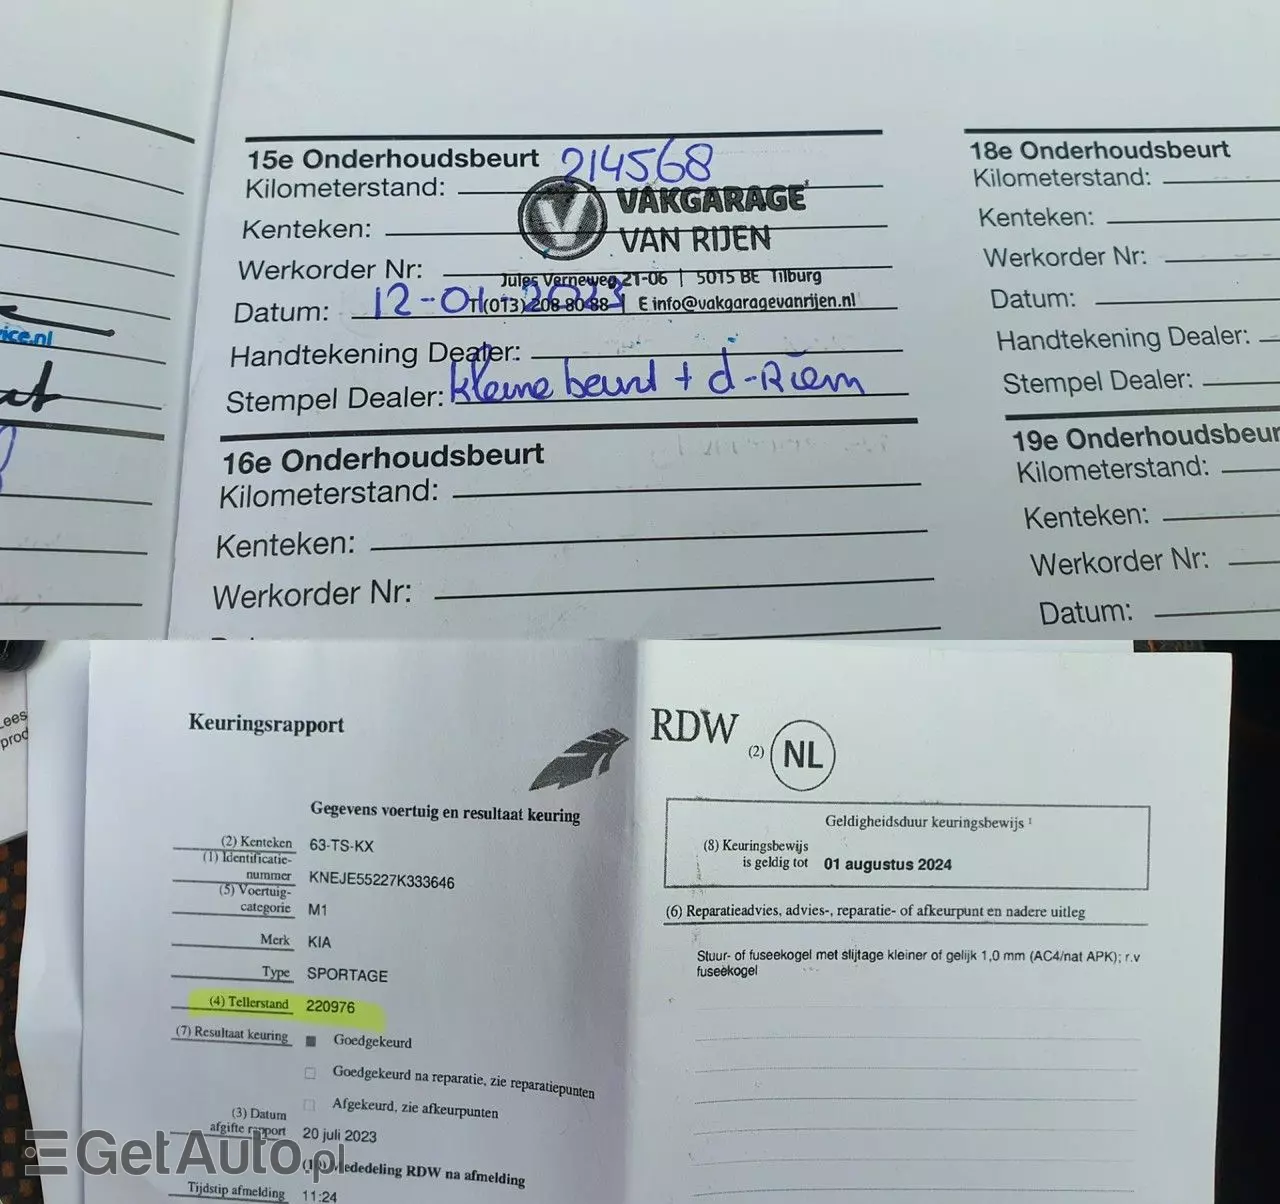 15e Onderhoudsbeurt
Kilometerstand: 214568
VAKGARAGE
Kenteken:
VAN RIJEN
Werkorder Nr:
Jules Verneweg 21-06 | 5015 BE Tilburg
Datum: 12-01-2023
T(013) 208 80 88 | E info@vakgaragevanrijen.nl
Handtekening Dealer:
Stempel Dealer: kleine beurt + d-Riem
16e Onderhoudsbeurt
Kilometerstand:
Kenteken:
Werkorder Nr:
18e Onderhoudsbeurt
Kilometerstand:
Kenteken:
Werkorder Nr:
Datum:
Handtekening Dealer:
Stempel Dealer:
19e Onderhoudsbeur
Kilometerstand:
Kenteken:
Werkorder Nr:
Datum:
ice.nl
Lees
prod
Keuringsrapport
Gegevens voertuig en resultaat keuring
(2) Kenteken 63-TS-KX
(1) Identificatie-
nummer KNEJE55227K333646
(5) Voertuig-
categorie M1
Merk KIA
Type SPORTAGE
(4) Tellerstand 220976
(7) Resultaat keuring Goedgekeurd
Goedgekeurd na reparatie, zie reparatiepunten
Afgekeurd, zie afkeurpunten
(3) Datum
afgifte rapport 20 juli 2023
Mededeling RDW na afmelding
Tijdstip afmelding 11:24
RDW (2) NL
Geldigheidsduur keuringsbewijs 1
(8) Keuringsbewijs
is geldig tot 01 augustus 2024
(6) Reparatieadvies, advies-, reparatie- of afkeurpunt en nadere uitleg
Stuur- of fuseekogel met slijtage kleiner of gelijk 1,0 mm (AC4/nat APK); r.v
fuseekogel
GetAuto.pl